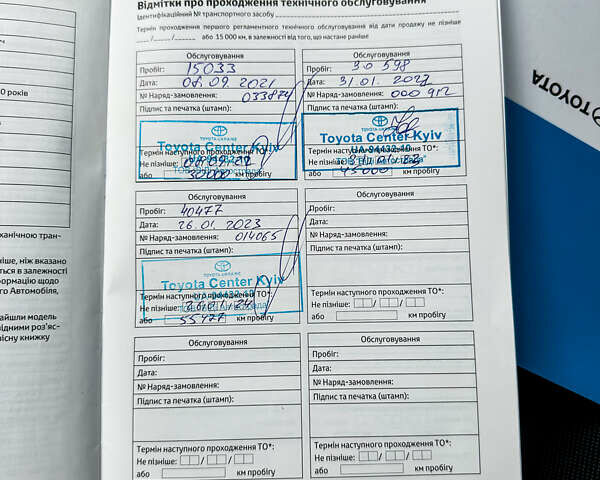 Відмітки про проходження технічного обслуговування
Ідентифікаційний № транспортного засобу
Термін проходження першого регламентного технічного обслуговування від дати продажу не пізніше
__/__/____ або 15 000 км, в залежності від того, що настане раніше
Обслуговування
Пробіг: 15033
Дата: 08.09.2021
№ Наряд-замовлення: 033874
Підпис та печатка (штамп):
TOYOTA-UKRAINE
Toyota Center Kyiv
Термін наступного проходження ТО*:
Не пізніше:
або 30000 км пробігу
Обслуговування
Пробіг: 30 598
Дата: 31.01.2022
№ Наряд-замовлення: 000 912
Підпис та печатка (штамп):
TOYOTA-UKRAINE
Toyota Center Kyiv
UA-04432-40
Термін наступного проходження ТО*:
Не пізніше:
або 45000 км пробігу
Обслуговування
Пробіг: 40477
Дата: 26.01.2023
№ Наряд-замовлення: 014065
Підпис та печатка (штамп):
TOYOTA-UKRAINE
Toyota Center Kyiv
Термін наступного проходження ТО*:
Не пізніше: 26.01.24
або 55477 км пробігу
Обслуговування
Пробіг:
Дата:
№ Наряд-замовлення:
Підпис та печатка (штамп):
Термін наступного проходження ТО*:
Не пізніше: / /
або км пробігу
Обслуговування
Пробіг:
Дата:
№ Наряд-замовлення:
Підпис та печатка (штамп):
Термін наступного проходження ТО*:
Не пізніше: / /
або км пробігу
Обслуговування
Пробіг:
Дата:
№ Наряд-замовлення:
Підпис та печатка (штамп):
Термін наступного проходження ТО*:
Не пізніше: / /
або км пробігу
0 років
ханічною тран-
ніше, ніж вказано
ться в залежності
формацію щодо
го Автомобіля,
найшли модель
відними роз'яс-
вісну книжку
TOYOTA